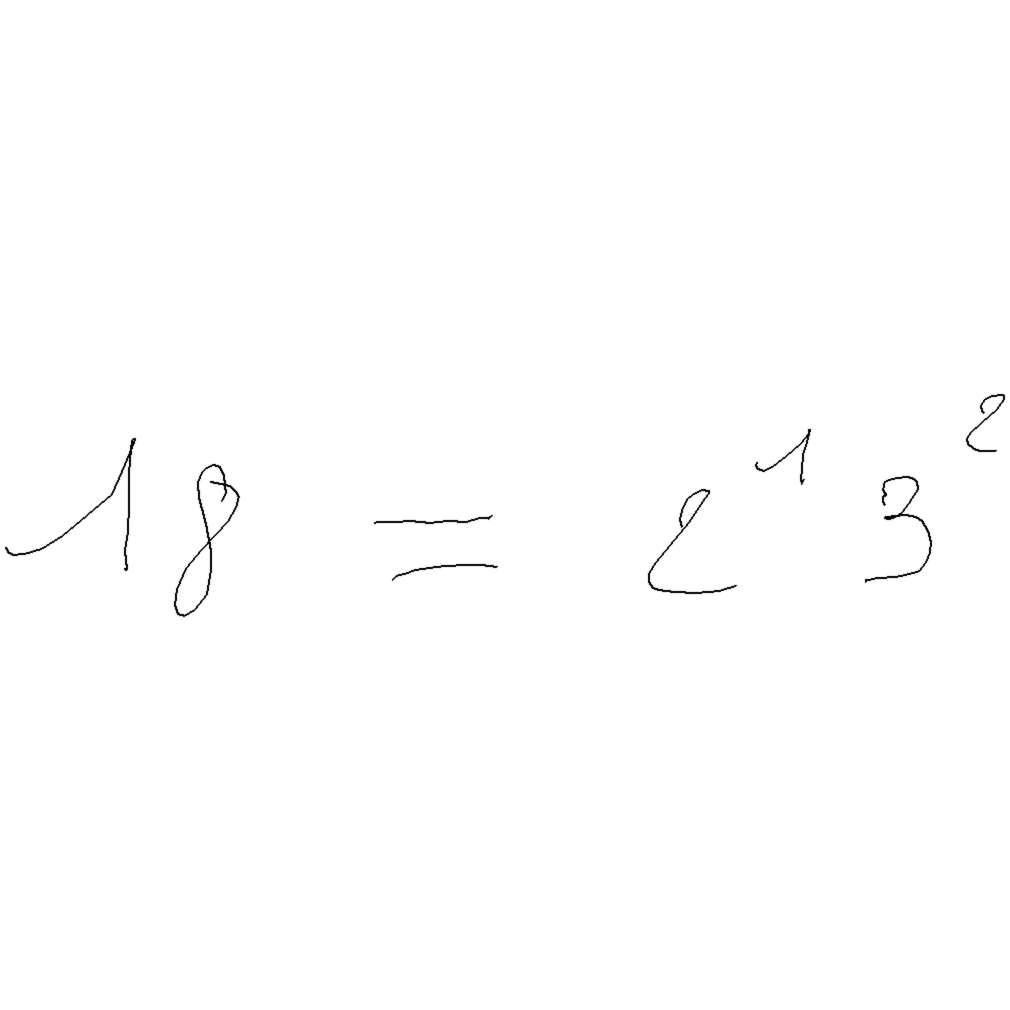 18 = 2¹ 3²